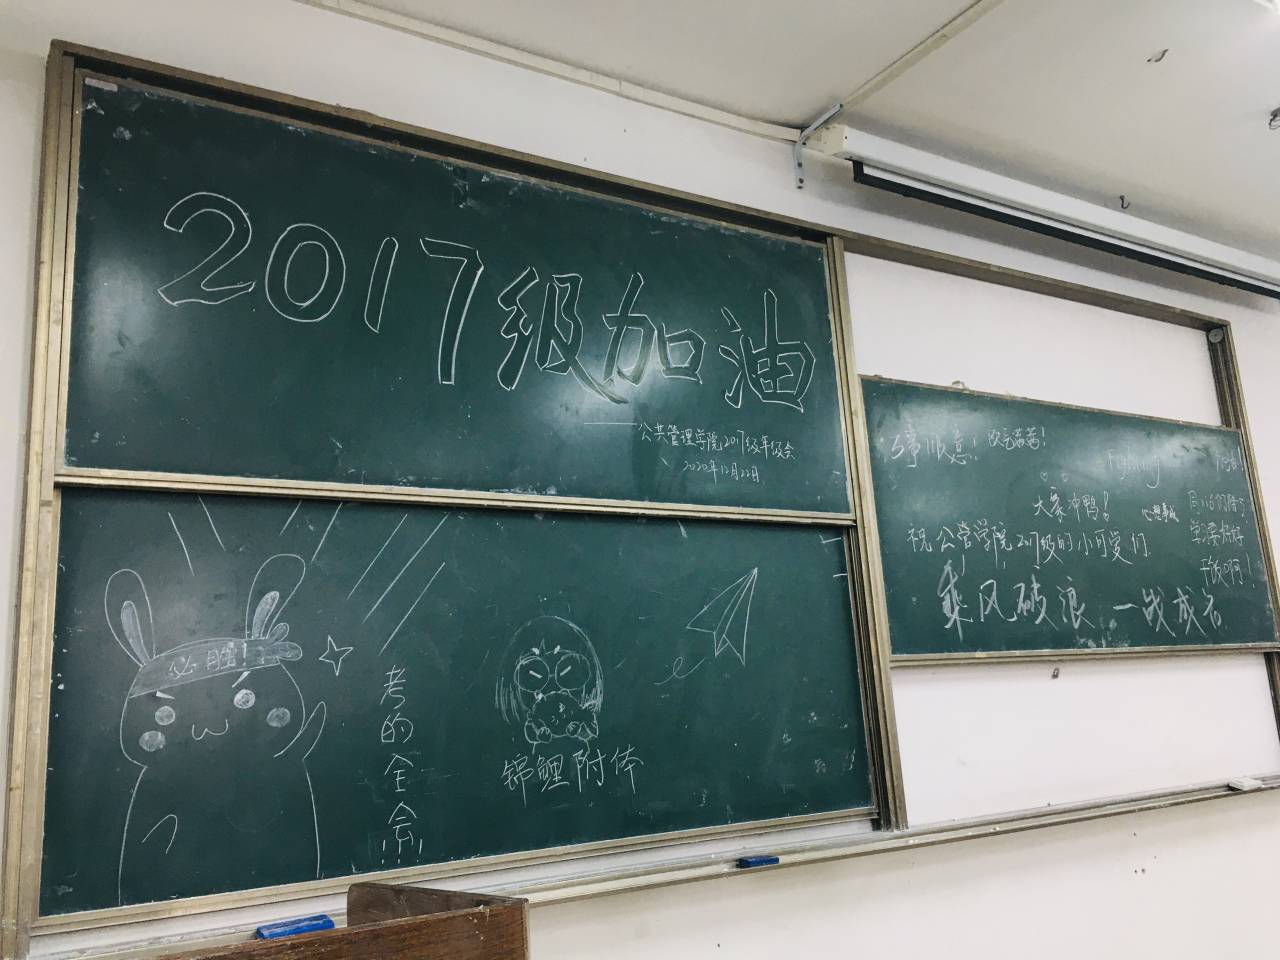 2017级加油
——公共管理学院2017级年级会
2020年12月22日
必胜!
考的全会!!!
锦鲤附体
事顺意!
Fighting
大家冲鸭!
心想事成
祝公管学院2017级的小可爱们
学习要好好
干饭啊!
乘风破浪 一战成名